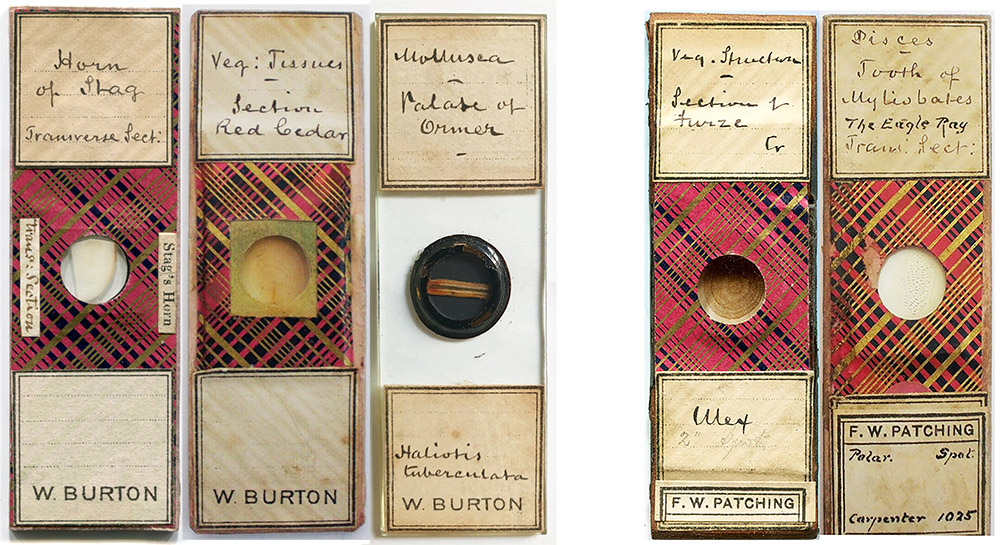 Horn
of Stag
Transverse Sect:
Trans: Section
Stag's Horn
W. BURTON
Veg: Tissues
Section
Red Cedar
W. BURTON
Mollusca
Palate of
Ormer
Haliotis
tuberculata
W. BURTON
Veg. Structure
Section of
Furze
Tr
Ulex
F. W. PATCHING
Pisces
Tooth of
Myliobates
The Eagle Ray
Trans. Sect:
F. W. PATCHING
Polar. Spot
Carpenter 1025